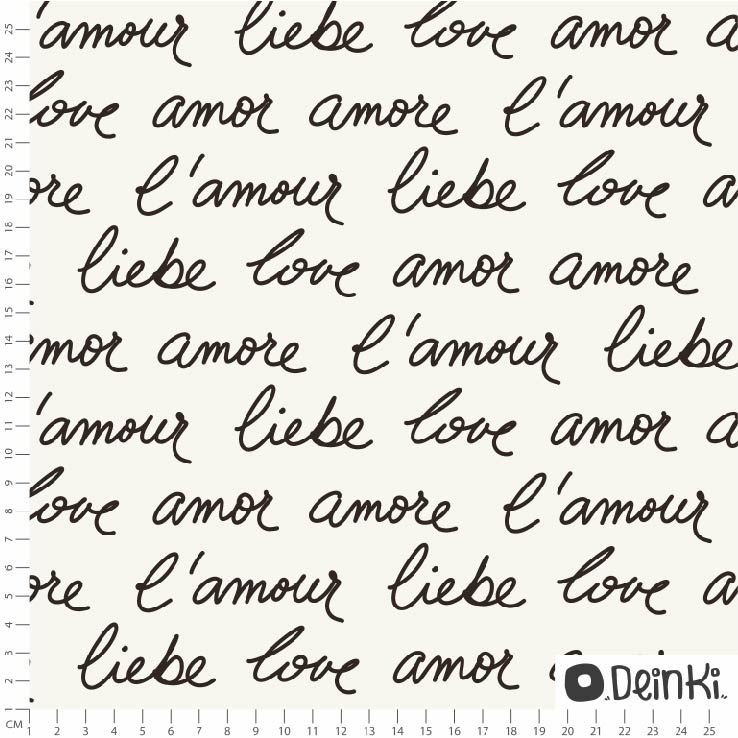 'amour liebe love amor a
love amor amore l'amour
ore l'amour liebe love a
liebe love amor amore
mor amore l'amour liebe
'amour liebe love amor a
love amor amore l'amour
ore l'amour liebe love a
liebe love amor
Deinki
25
24
23
22
21
20
19
18
17
16
15
14
13
12
11
10
9
8
7
6
5
4
3
2
1
CM 1 2 3 4 5 6 7 8 9 10 11 12 13 14 15 16 17 18 19 20 21 22 23 24 25